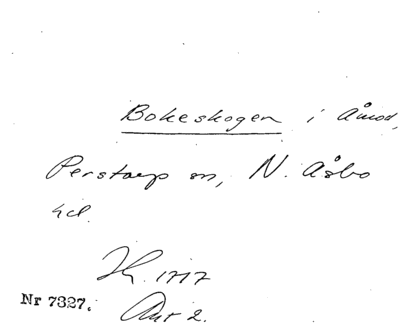 Bokeskogen i Åmod,
Perstorp sn, N. Åsbo
hd.
H. 1717
Nr 7327. Akt 2.